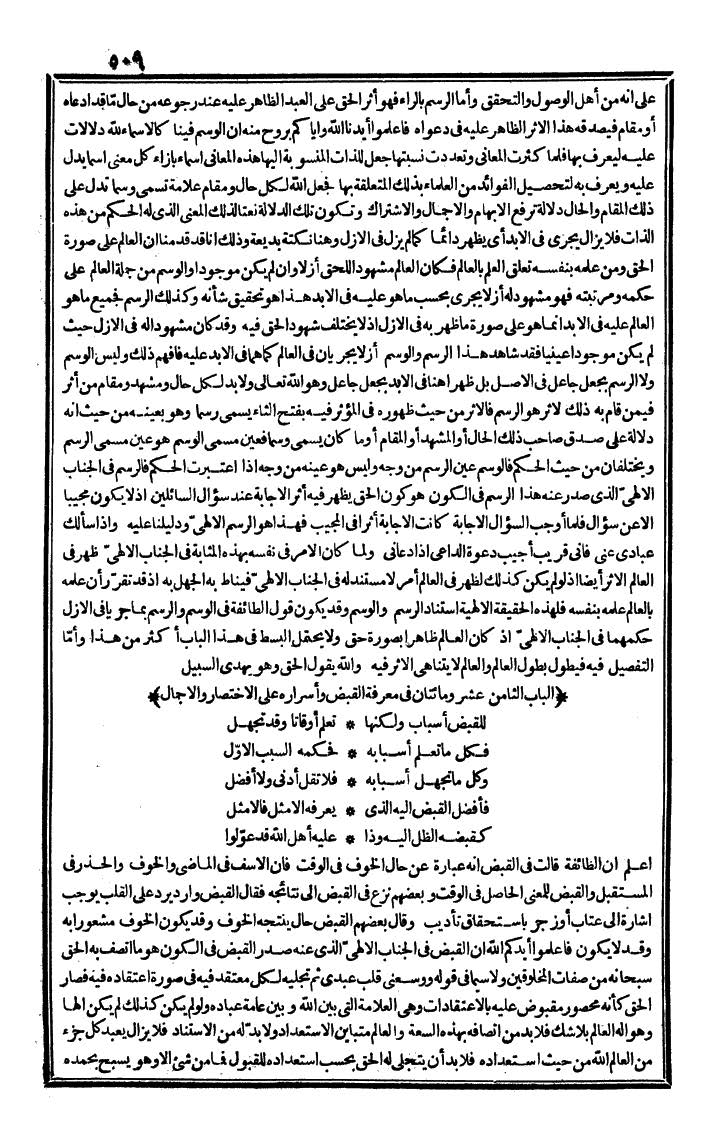 ٥٠٩
على انه من أهل الوصول والتحقق وأما الرسم بالراء فهو أثر الحق على العبد الظاهر عليه عند رجوعه من حال مّا قد ادعاه
أو مقام فيصدقه هذا الاثر الظاهر عليه فى دعواه فاعلموا أيدنا الله واياكم بروح منه ان الوسم فينا كالاسماء لله دلالات
عليه ليعرف بها فلما كثرت المعانى وتعددت نسبتها جعل للذات المنسوبة اليها هذه المعانى اسماء بازاء كل معنى اسما يدل
عليه ويعرف به لتحصيل الفوائد من العلماء بذلك المتعلقة بها فجعل الله لكل حال ومقام علامة تسمى وسما تدل على
ذلك المقام والحال دلالة ترفع الابهام والاجمال والاشتراك وتكون تلك الدلالة نعتا لذلك المعنى الذى له الحكم من هذه
الذات فلا يزال يجرى فى الابد أى يظهر دائما كما لم يزل فى الازل وهنا نكتة بديعة وذلك انا قد قدمنا ان العالم على صورة
الحق ومن علمه بنفسه تعلق العلم بالعالم فكان العالم مشهودا للحق أزلا وان لم يكن موجودا والوسم من جملة العالم على
حكمه ومرتبته فهو مشهود له أزلا يجرى بحسب ما هو عليه فى الابد هذا هو تحقيق شأنه وكذلك الرسم فجميع ما هو
العالم عليه فى الابد انما هو على صورة ما ظهر به فى الازل اذ لا يختلف شهود الحق فيه وقد كان مشهودا له فى الازل حيث
لم يكن موجودا عينيا فقد شاهد هذا الرسم والوسم أزلا يجريان فى العالم كما هما فى الابد عليه فافهم ذلك وليس الوسم
ولا الرسم بجعل جاعل فى الاصل بل ظهرا هنا فى الابد بجعل جاعل وهو الله تعالى ولا بد لكل حال ومشهد ومقام من أثر
فيمن قام به ذلك لاثر هو الرسم فالاثر من حيث ظهوره فى المؤثر فيه بفتح الثاء يسمى رسما وهو بعينه من حيث انه
دلالة على صدق صاحب ذلك الحال أو المشهد أو المقام أو ما كان يسمى وسما فعين مسمى الوسم هو عين مسمى الرسم
ويختلفان من حيث الحكم فالوسم عين الرسم من وجه وليس هو عينه من وجه اذا اعتبرت الحكم فالرسم فى الجناب
الالهىّ الذى صدر عنه هذا الرسم فى الكون هو كون الحق يظهر فيه أثر الاجابة عند سؤال السائلين اذ لا يكون مجيبا
الا عن سؤال فلما أوجب السؤال الاجابة كانت الاجابة أثرا فى المجيب فهذا هو الرسم الالهىّ ودليلنا عليه واذا سألك
عبادى عنى فانى قريب أجيب دعوة الداعى اذا دعانى ولما كان الامر فى نفسه بهذه المثابة فى الجناب الالهىّ ظهر فى
العالم الاثر أيضا اذ لو لم يكن كذلك لظهر فى العالم أمر لا مستند له فى الجناب الالهىّ فيناط به الجهل به اذ قد تقرّر أن علمه
بالعالم علمه بنفسه فلهذه الحقيقة الالهية استناد الرسم والوسم وقد يكون قول الطائفة فى الوسم والرسم بما جريا فى الازل
حكمهما فى الجناب الالهىّ اذ كان العالم ظاهرا بصورة حق ولا يحتمل البسط فى هذا الباب أكثر من هذا وأمّا
التفصيل فيه فيطول بطول العالم والعالم لا يتناهى الاثر فيه والله يقول الحق وهو يهدى السبيل
﴿الباب الثامن عشر ومائتان فى معرفة القبض وأسراره على الاختصار والاجمال﴾
للقبض أسباب ولكنها * تعلم أوقاتا وقد تجهل
فكل ما تعلم أسبابه * فحكمه السبب الاوّل
وكل ما تجهل أسبابه * فلا تقل أدنى ولا أفضل
فأفضل القبض اليه الذى * يعرفه الامثل فالامثل
كقبضه الظل اليه وذا * عليه أهل الله قد عوّلوا
اعلم ان الطائفة قالت فى القبض انه عبارة عن حال الخوف فى الوقت فان الاسف فى الماضى والخوف والحذر فى
المستقبل والقبض للمعنى الحاصل فى الوقت وبعضهم نزع فى القبض الى نتائجه فقال القبض وارد يرد على القلب يوجب
اشارة الى عتاب أو زجر باستحقاق تأديب وقال بعضهم القبض حال ينتجه الخوف وقد يكون الخوف مشعورا به
وقد لا يكون فاعلموا أيدكم الله ان القبض فى الجناب الالهىّ الذى عنه صدر القبض فى الكون هو ما اتصف به الحق
سبحانه من صفات المخلوقين ولا سيما فى قوله ووسعنى قلب عبدى ثم تجليه لكل معتقد فيه فى صورة اعتقاده فيه فصار
الحق كأنه محصور مقبوض عليه بالاعتقادات وهى العلامة التى بين الله وبين عامة عباده ولو لم يكن كذلك لم يكن الها
وهو اله العالم بلا شك فلا بد من اتصافه بهذه السعة والعالم متباين الاستعداد ولا بدّ له من الاستناد فلا يزال يعبد كل جزء
من العالم الله من حيث استعداده فلا بد أن يتجلى له الحق بحسب استعداده للقبول فما من شئ الا وهو يسبح بحمده